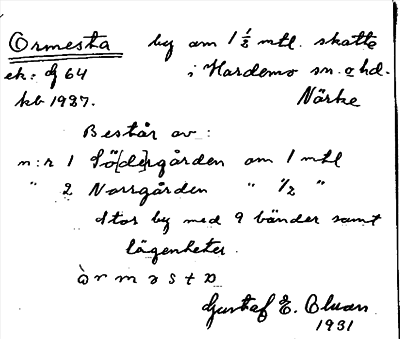 Ormesta by om 1 1/2 mtl. skatte
ek: dj 64 i Hardemo sn. o hd.
kb 1937. Närke
Består av:
n:r 1 Sö[de]rgården om 1 mtl
" 2 Norrgården " 1/2 "
Stor by med 9 bönder samt
lägenheter.
ò r m ə s t
Gustaf E.
1931